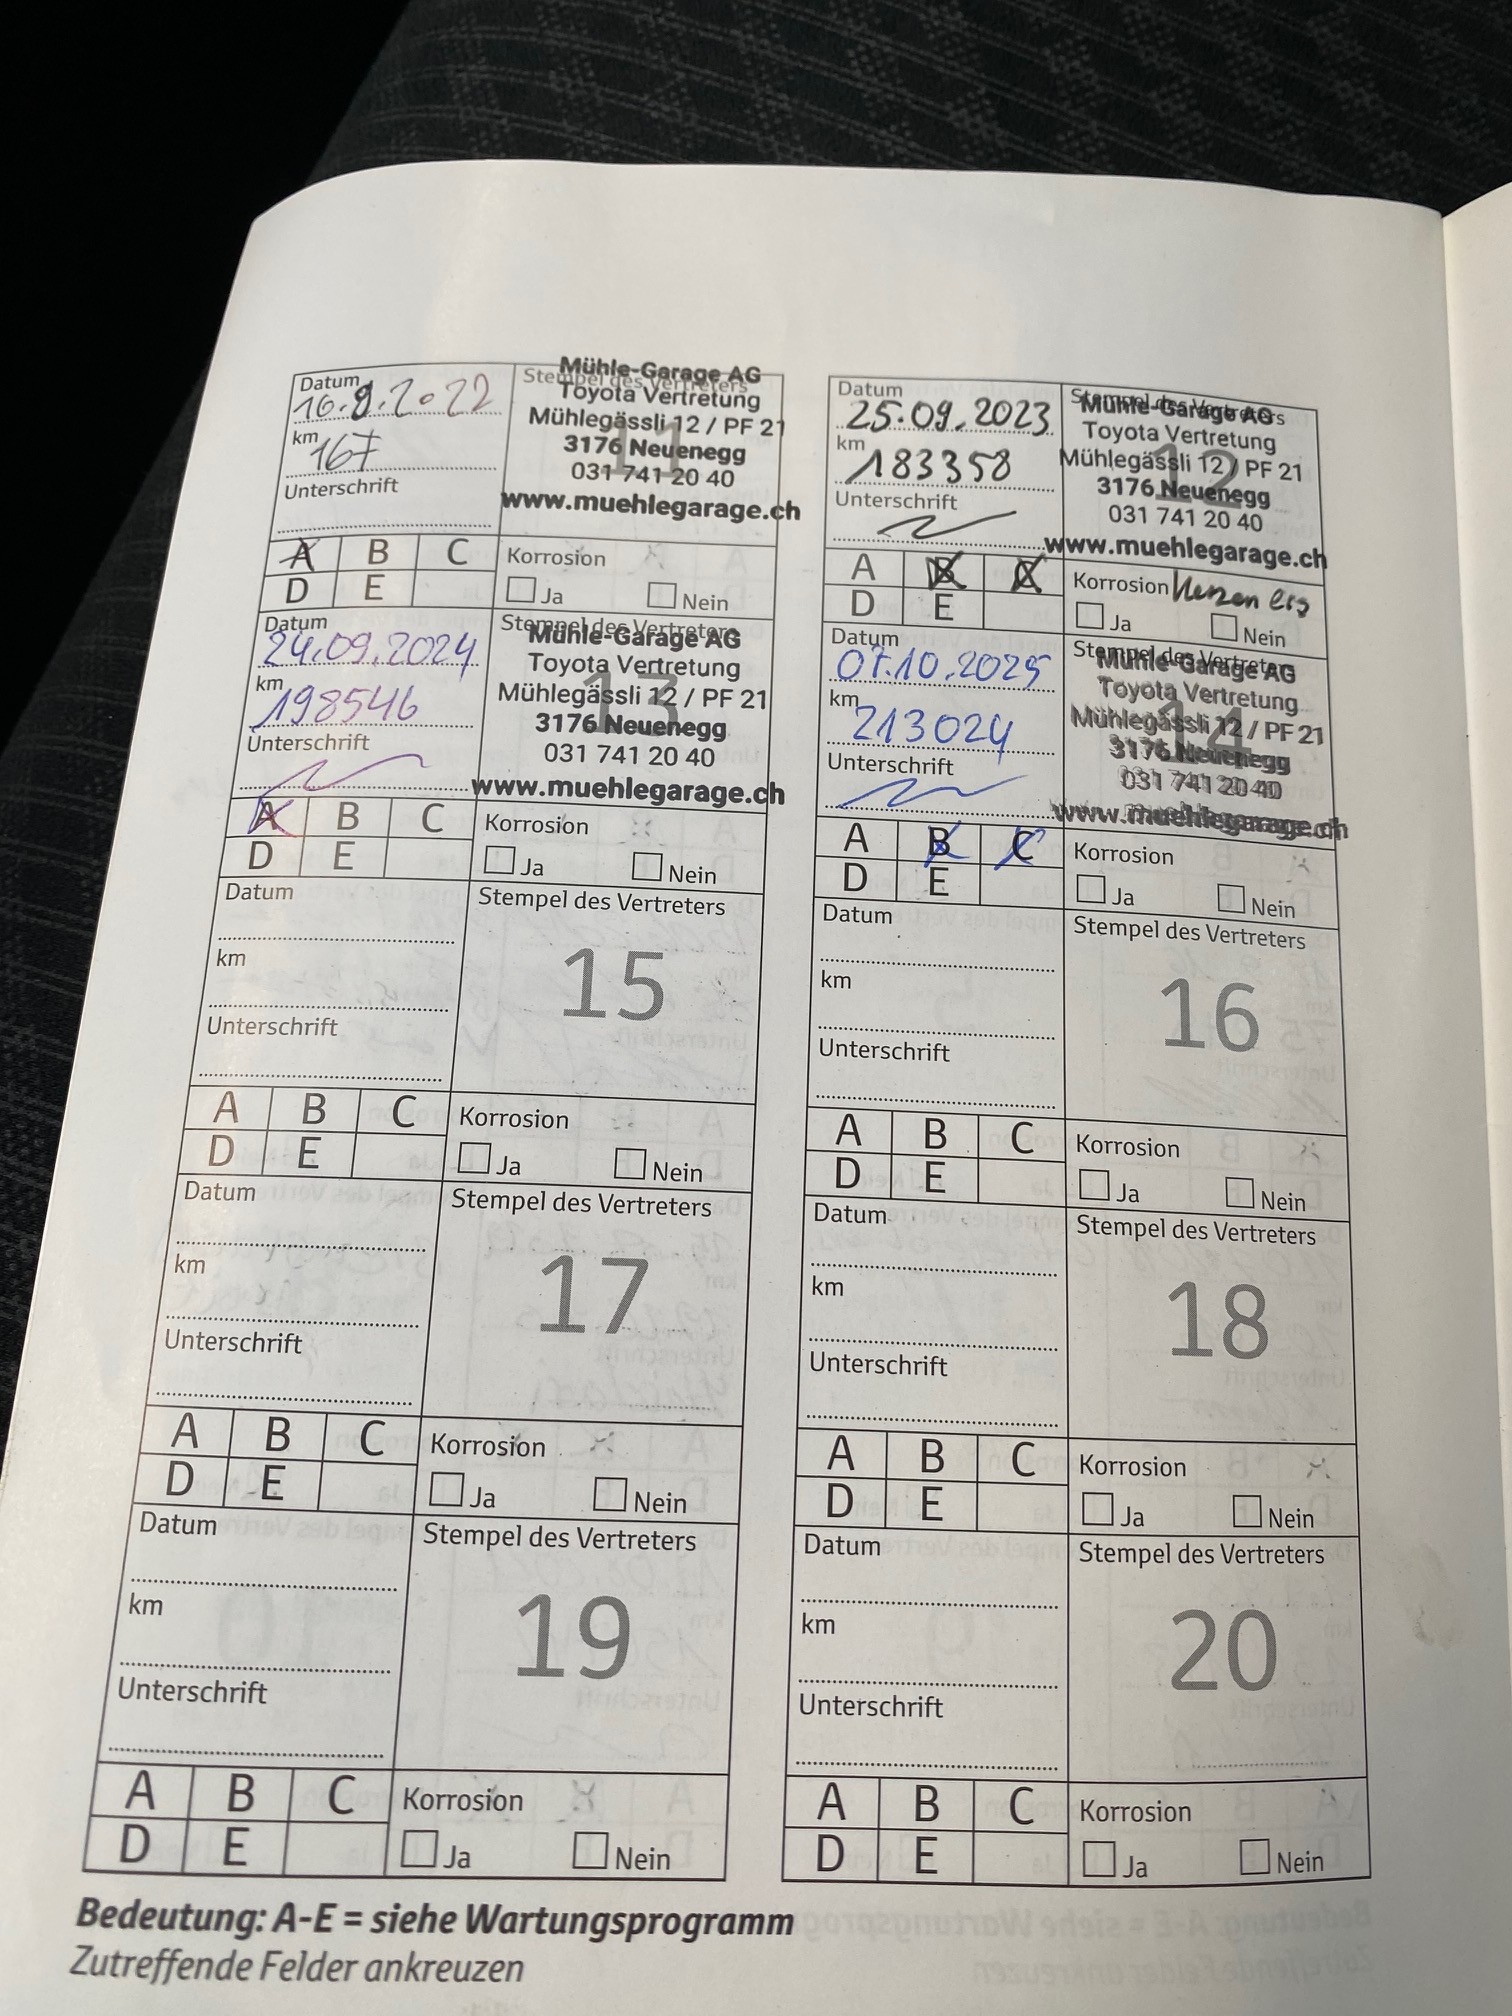 Datum 16.9.2022
km 167
Unterschrift
Stempel des Vertreters
11
Mühle-Garage AG
Toyota Vertretung
Mühlegässli 12 / PF 21
3176 Neuenegg
031 741 20 40
www.muehlegarage.ch
A B C
D E
Korrosion
Ja Nein
Datum 25.09.2023
km 183358
Unterschrift
Stempel des Vertreters
12
Mühle-Garage AG
Toyota Vertretung
Mühlegässli 12 / PF 21
3176 Neuenegg
031 741 20 40
www.muehlegarage.ch
A B C
D E
Korrosion
Ja Nein
Datum 24.09.2024
km 198546
Unterschrift
Stempel des Vertreters
13
Mühle-Garage AG
Toyota Vertretung
Mühlegässli 12 / PF 21
3176 Neuenegg
031 741 20 40
www.muehlegarage.ch
A B C
D E
Korrosion
Ja Nein
Datum 07.10.2025
km 213024
Unterschrift
Stempel des Vertreters
14
Mühle-Garage AG
Toyota Vertretung
Mühlegässli 12 / PF 21
3176 Neuenegg
031 741 20 40
www.muehlegarage.ch
A B C
D E
Korrosion
Ja Nein
Datum
km
Unterschrift
Stempel des Vertreters
15
A B C
D E
Korrosion
Ja Nein
Datum
km
Unterschrift
Stempel des Vertreters
16
A B C
D E
Korrosion
Ja Nein
Datum
km
Unterschrift
Stempel des Vertreters
17
A B C
D E
Korrosion
Ja Nein
Datum
km
Unterschrift
Stempel des Vertreters
18
A B C
D E
Korrosion
Ja Nein
Datum
km
Unterschrift
Stempel des Vertreters
19
A B C
D E
Korrosion
Ja Nein
Datum
km
Unterschrift
Stempel des Vertreters
20
A B C
D E
Korrosion
Ja Nein
Bedeutung: A-E = siehe Wartungsprogramm
Zutreffende Felder ankreuzen